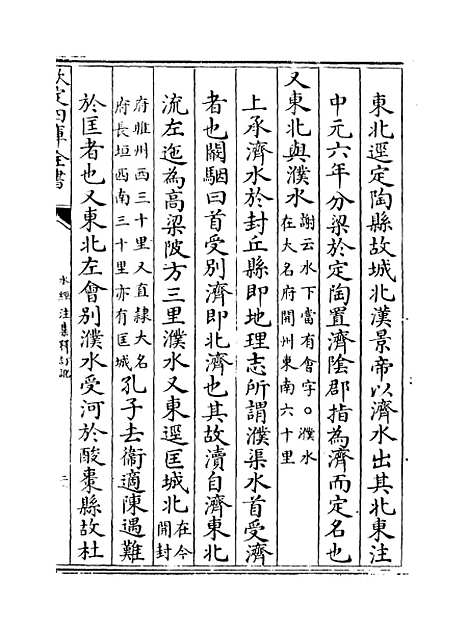 東北逕定陶縣故城北漢景帝以濟水出其北東注
中元六年分梁於定陶置濟隂郡指為濟而定名也
又東北與濮水謝云水下當有會字○濮水在大名府開州東南六十里
上承濟水於封丘縣即地理志所謂濮渠水首受濟
者也闞駰曰首受别濟即北濟也其故瀆自濟東北
流左迤為高梁陂方三里濮水又東逕匡城北在今開封
府睢州西三十里又直隸大名府長垣西南三十里亦有匡城孔子去衞適陳遇難
於匡者也又東北左會别濮水受河於酸棗縣故杜
欽定四庫全書
水經注集釋訂訛